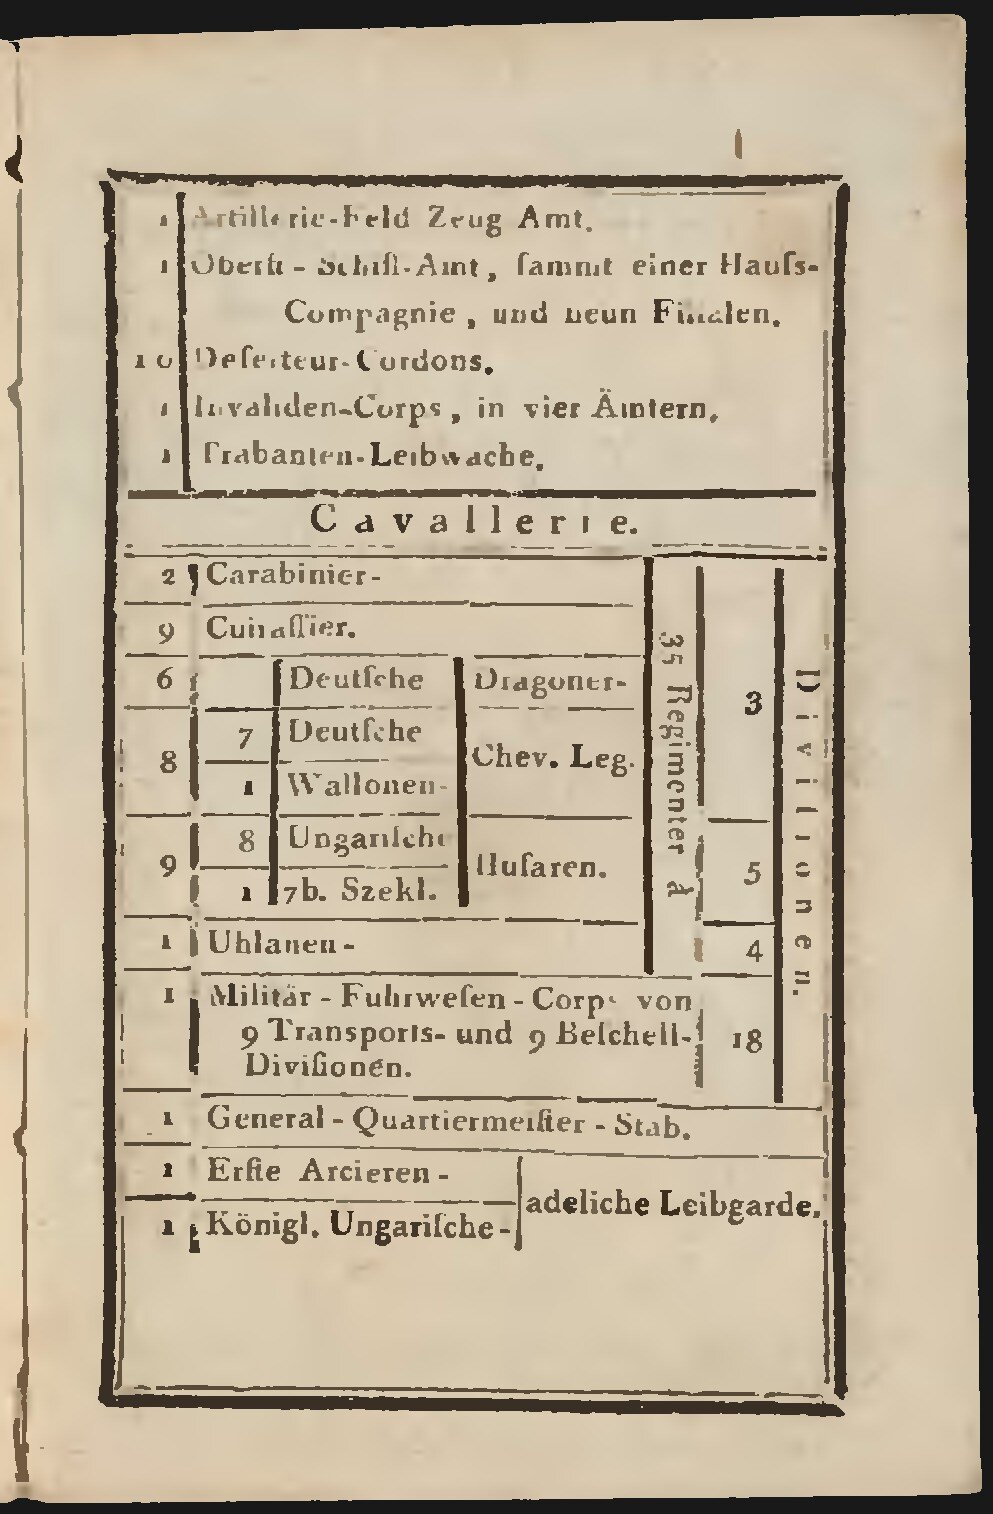 1 Artillerie-Feld Zeug Amt.
1 Oberſt - Schiff-Amt, ſammt einer Hauſs-
Compagnie, und neun Filialen.
10 Deſerteur-Cordons.
1 Invaliden-Corps, in vier Ämtern.
1 Trabanten-Leibwache.
Cavallerie.
2 Carabinier-
9 Cuiraſſier.
6 Deutſche Dragoner-
8 7 Deutſche Chev. Leg.
1 Wallonen-
9 8 Ungariſche Huſaren.
1 7b. Szekl.
1 Uhlanen-
35 Regimenter à
3
5
4
1 Militär - Fuhrweſen - Corps von
9 Transports- und 9 Beſchell-
Diviſionen.
18
Diviſionen.
1 General - Quartiermeiſter - Stab.
1 Erſte Arcieren -
1 Königl. Ungariſche -
adeliche Leibgarde.